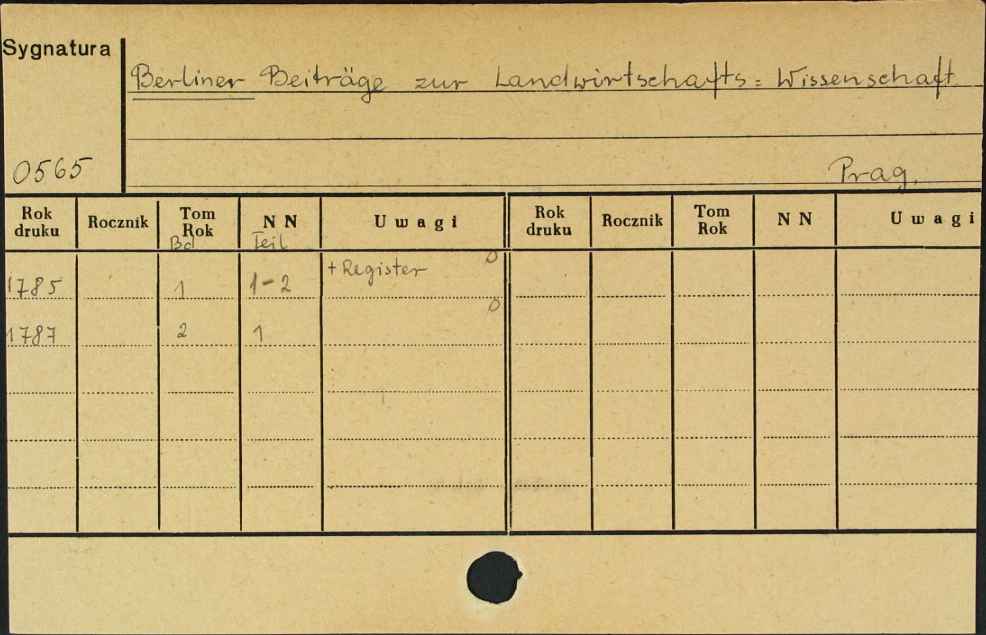 Sygnatura
Berliner Beiträge zur Landwirtschafts = Wissenschaft.
0565
Prag.
Rok druku Rocznik Tom Rok NN Uwagi Rok druku Rocznik Tom Rok NN Uwagi
Bd Teil
1785 1 1-2 + Register
1787 2 1